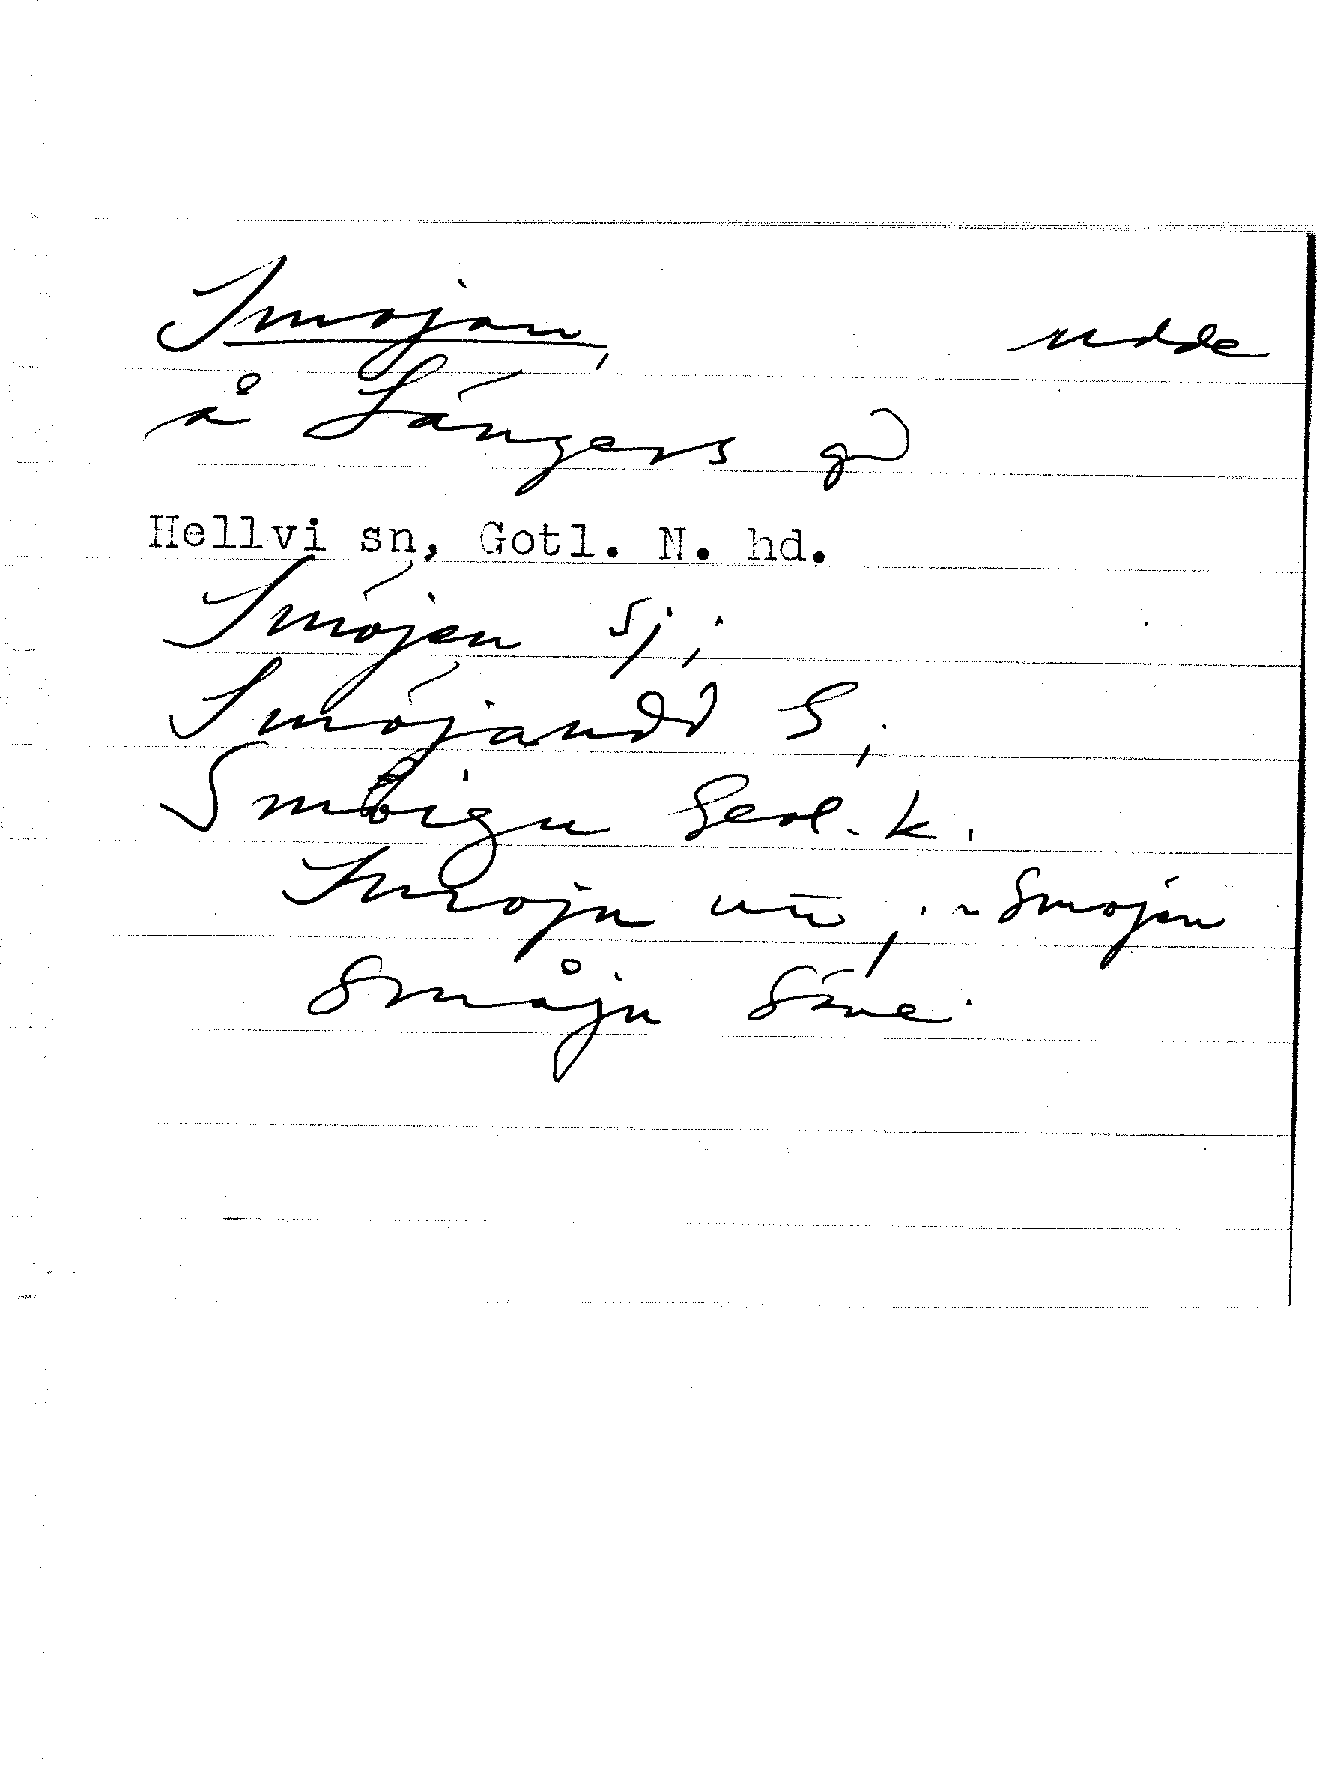 Smojan, udde
å Längers gd
Hellvi sn, Gotl. N. hd.
Smöjen Sj;
Smöjaudd G;
Smöigu Geol. k.
Smoju un; Smojen
Småju Säve